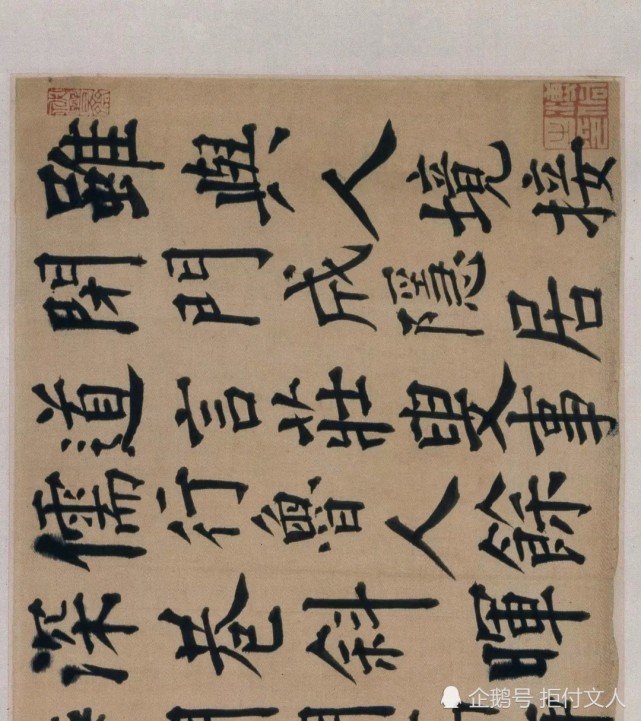 雖與人境接
閉門成隱居
道言莊叟事
儒行魯人餘
深巷斜暉
企鹅号 拒付文人